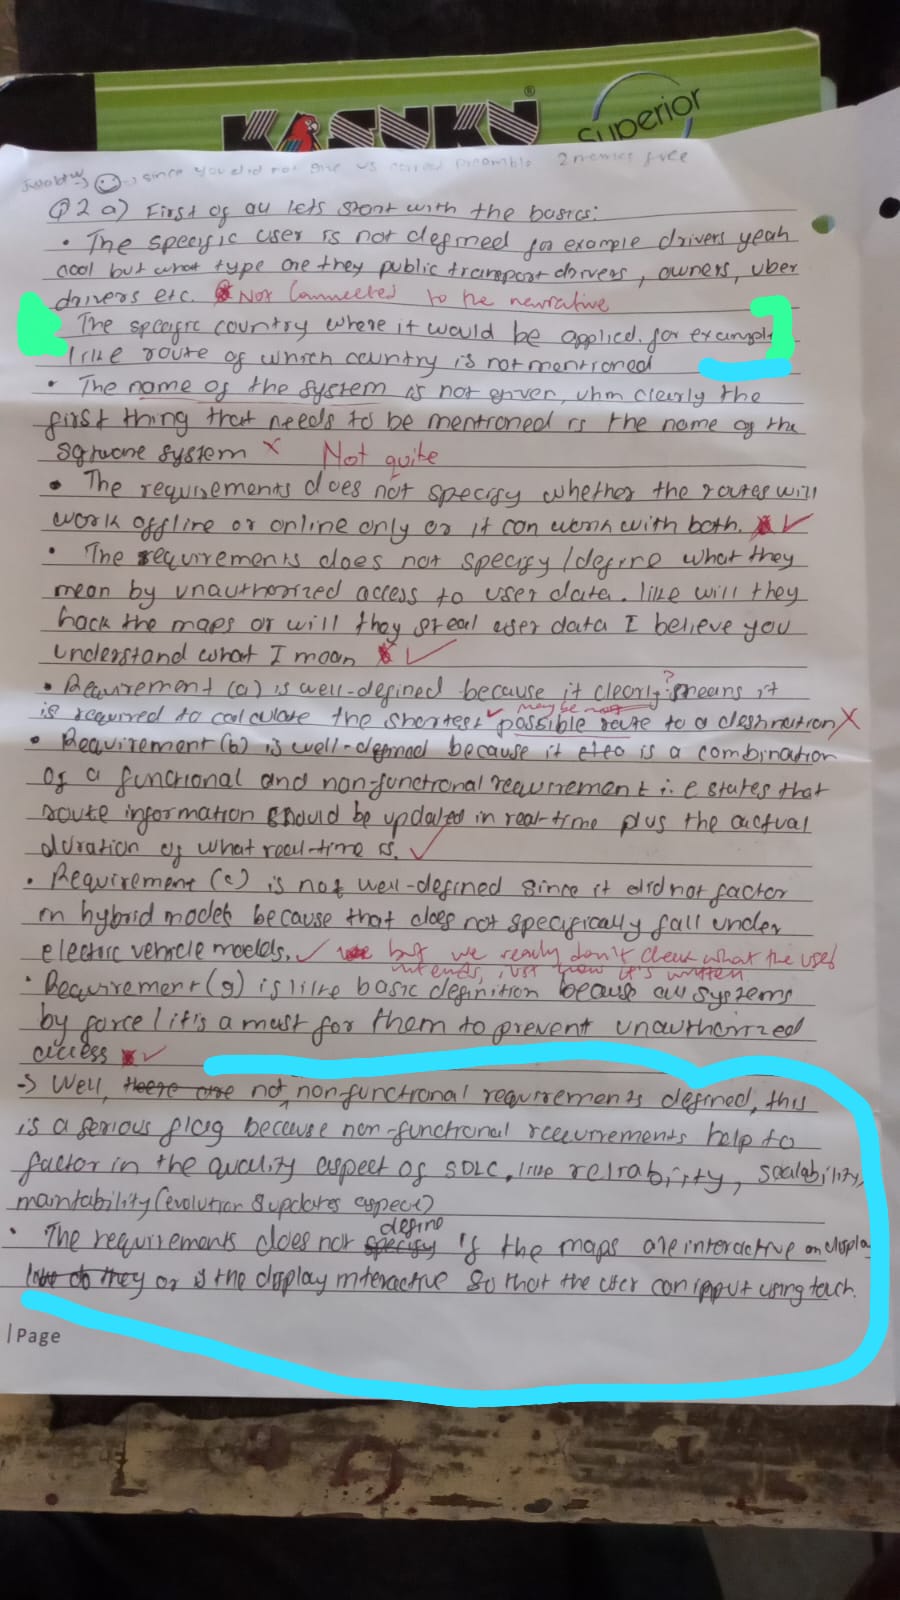 KASUKU
®
Superior
since you did not give us
preamble 2 memes free
Q2 a) First of all lets start with the basics:
• The specific user is not defined for example drivers yeah
cool but what type are they public transport drivers, owners, uber
drivers etc. Not Connected to the narrative
The specific country where it would be applied. for example
like route of which country is not mentioned
• The name of the system is not given, uhm clearly the
first thing that needs to be mentioned is the name of the
software system x Not quite
• The requirements does not specify whether the routes will
work offline or online only or it can work with both. ✓
• The requirements does not specify/define what they
mean by unauthorized access to user data. like will they
hack the maps or will they steal user data I believe you
understand what I mean ✓
• Requirement (a) is well-defined because it clearly means it
?
maybe not
is required to calculate the shortest ✓ possible route to a destination X
• Requirement (b) is well-defined because it is a combination
of a functional and non-functional requirement i.e states that
route information should be updated in real-time plus the actual
duration of what real-time is. ✓
• Requirement (c) is not well-defined since it did not factor
in hybrid models because that does not specifically fall under
electric vehicle models. ✓ but we really don't check what the user
intends, just how it's written
• Requirement (g) is like basic definition because all systems
by force/it's a must for them to prevent unauthorized
access ✓
-> Well, there are not non-functional requirements defined, this
is a serious flag because non-functional requirements help to
factor in the quality aspect of SDLC, like reliability, scalability,
maintability (evolution & updates aspect)
define
• The requirements does not specify if the maps are interactive on display
or is the display interactive so that the user can input using touch.
| Page